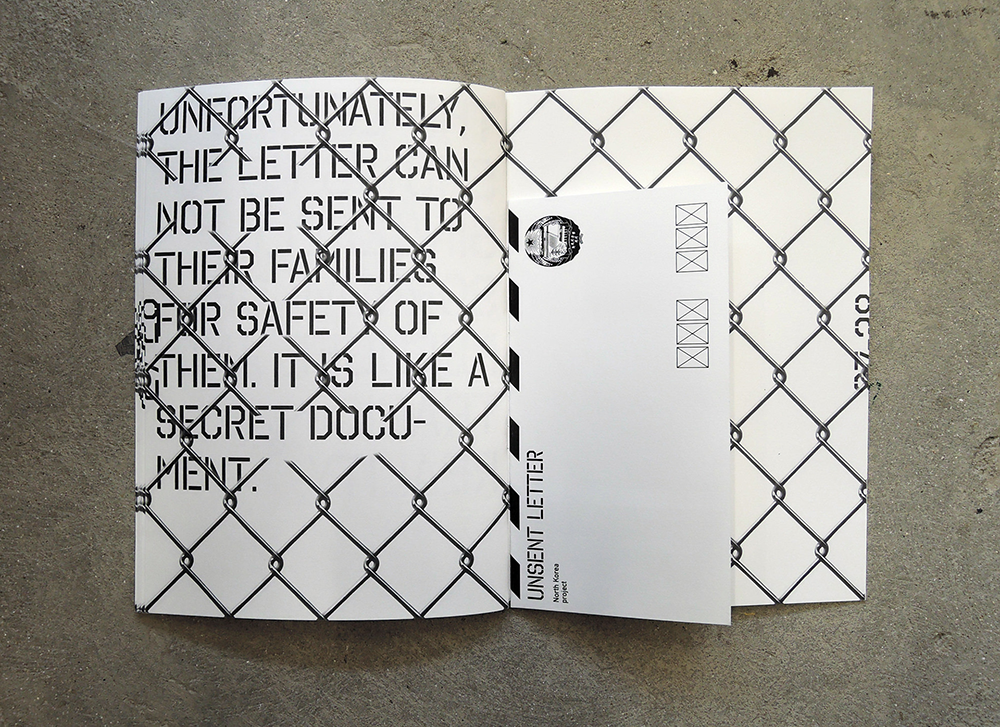 UNFORTUNATELY,
THE LETTER CAN
NOT BE SENT TO
THEIR FAMILIES
FOR SAFETY OF
THEM. IT IS LIKE A
SECRET DOCU-
MENT.
UNSENT LETTER
North Korea
project